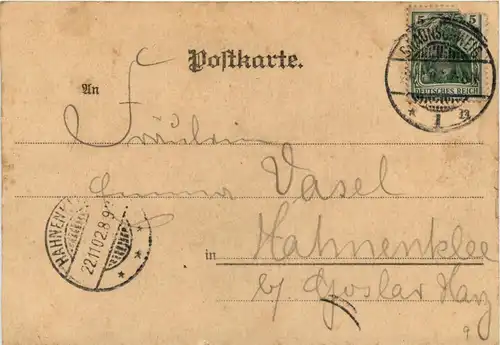 5 5
DEUTSCHES REICH
BRAUNSCHWEIG
* 1 n
Postkarte.
An
Fräulein
Emma Vasel
in Hahnenklee
b/ Goslar Harz
22.11.02.8-9
9